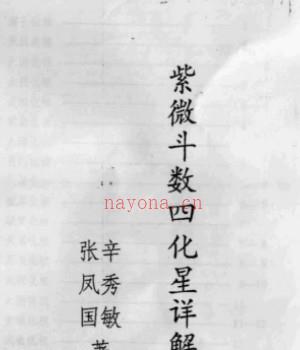 紫微斗数四化星详解
辛秀敏
张凤国 著
nayona.cn